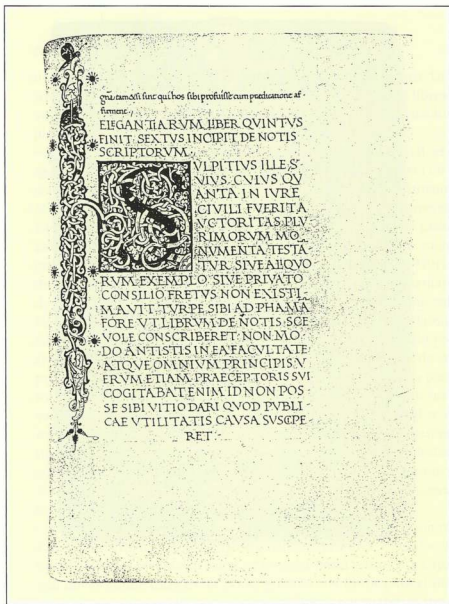 tamesi sint qui hos sibi profuisse cum predicatione af-
firment.
ELEGANTIARVM LIBER QVINTVS
FINIT SEXTVS INCIPIT DE NOTIS
SCRIPTORVM.
SVLPITIVS ILLE S
VIVS. CVIVS QV
ANTA IN IVRE
CIVILI FVERIT A
VCTORITAS PLV
RIMORVM MO
NVMENTA TESTA
TVR SIVE ALIQVO
RVM EXEMPLO. SIVE PRIVATO
CONSILIO FRETVS NON EXISTI
MAVIT TVRPE SIBI AD PHAMA
FORE VT LIBRVM DE NOTIS SCE
VOLE CONSCRIBERET NON MO
DO ANTISTIS IN EA FACVLTATE
ATQVE OMNIVM PRINCIPIS V
ERVM ETIAM PRAECEPTORIS SVI
COGITABAT ENIM ID NON POS
SE SIBI VITIO DARI QVOD PVBLI
CAE VTILITATIS CAVSA SVSCIPE
RET